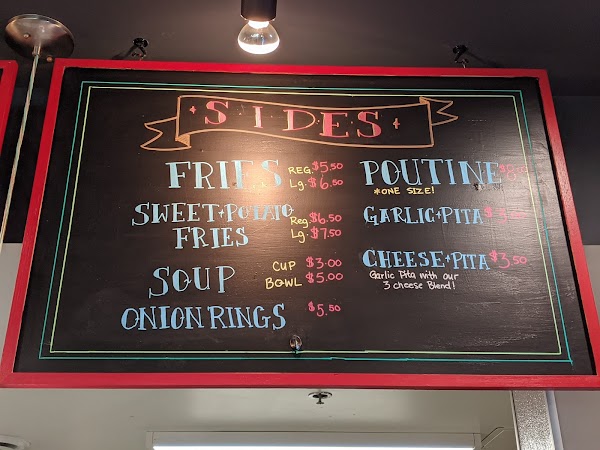 SIDES
FRIES REG. $5.50
Lg. $6.50
SWEET POTATO FRIES Reg. $6.50
Lg. $7.50
SOUP CUP $3.00
BOWL $5.00
ONION RINGS $5.50
POUTINE
*ONE SIZE!
GARLIC PITA
CHEESE PITA $3.50
Garlic Pita with our
3 cheese Blend!